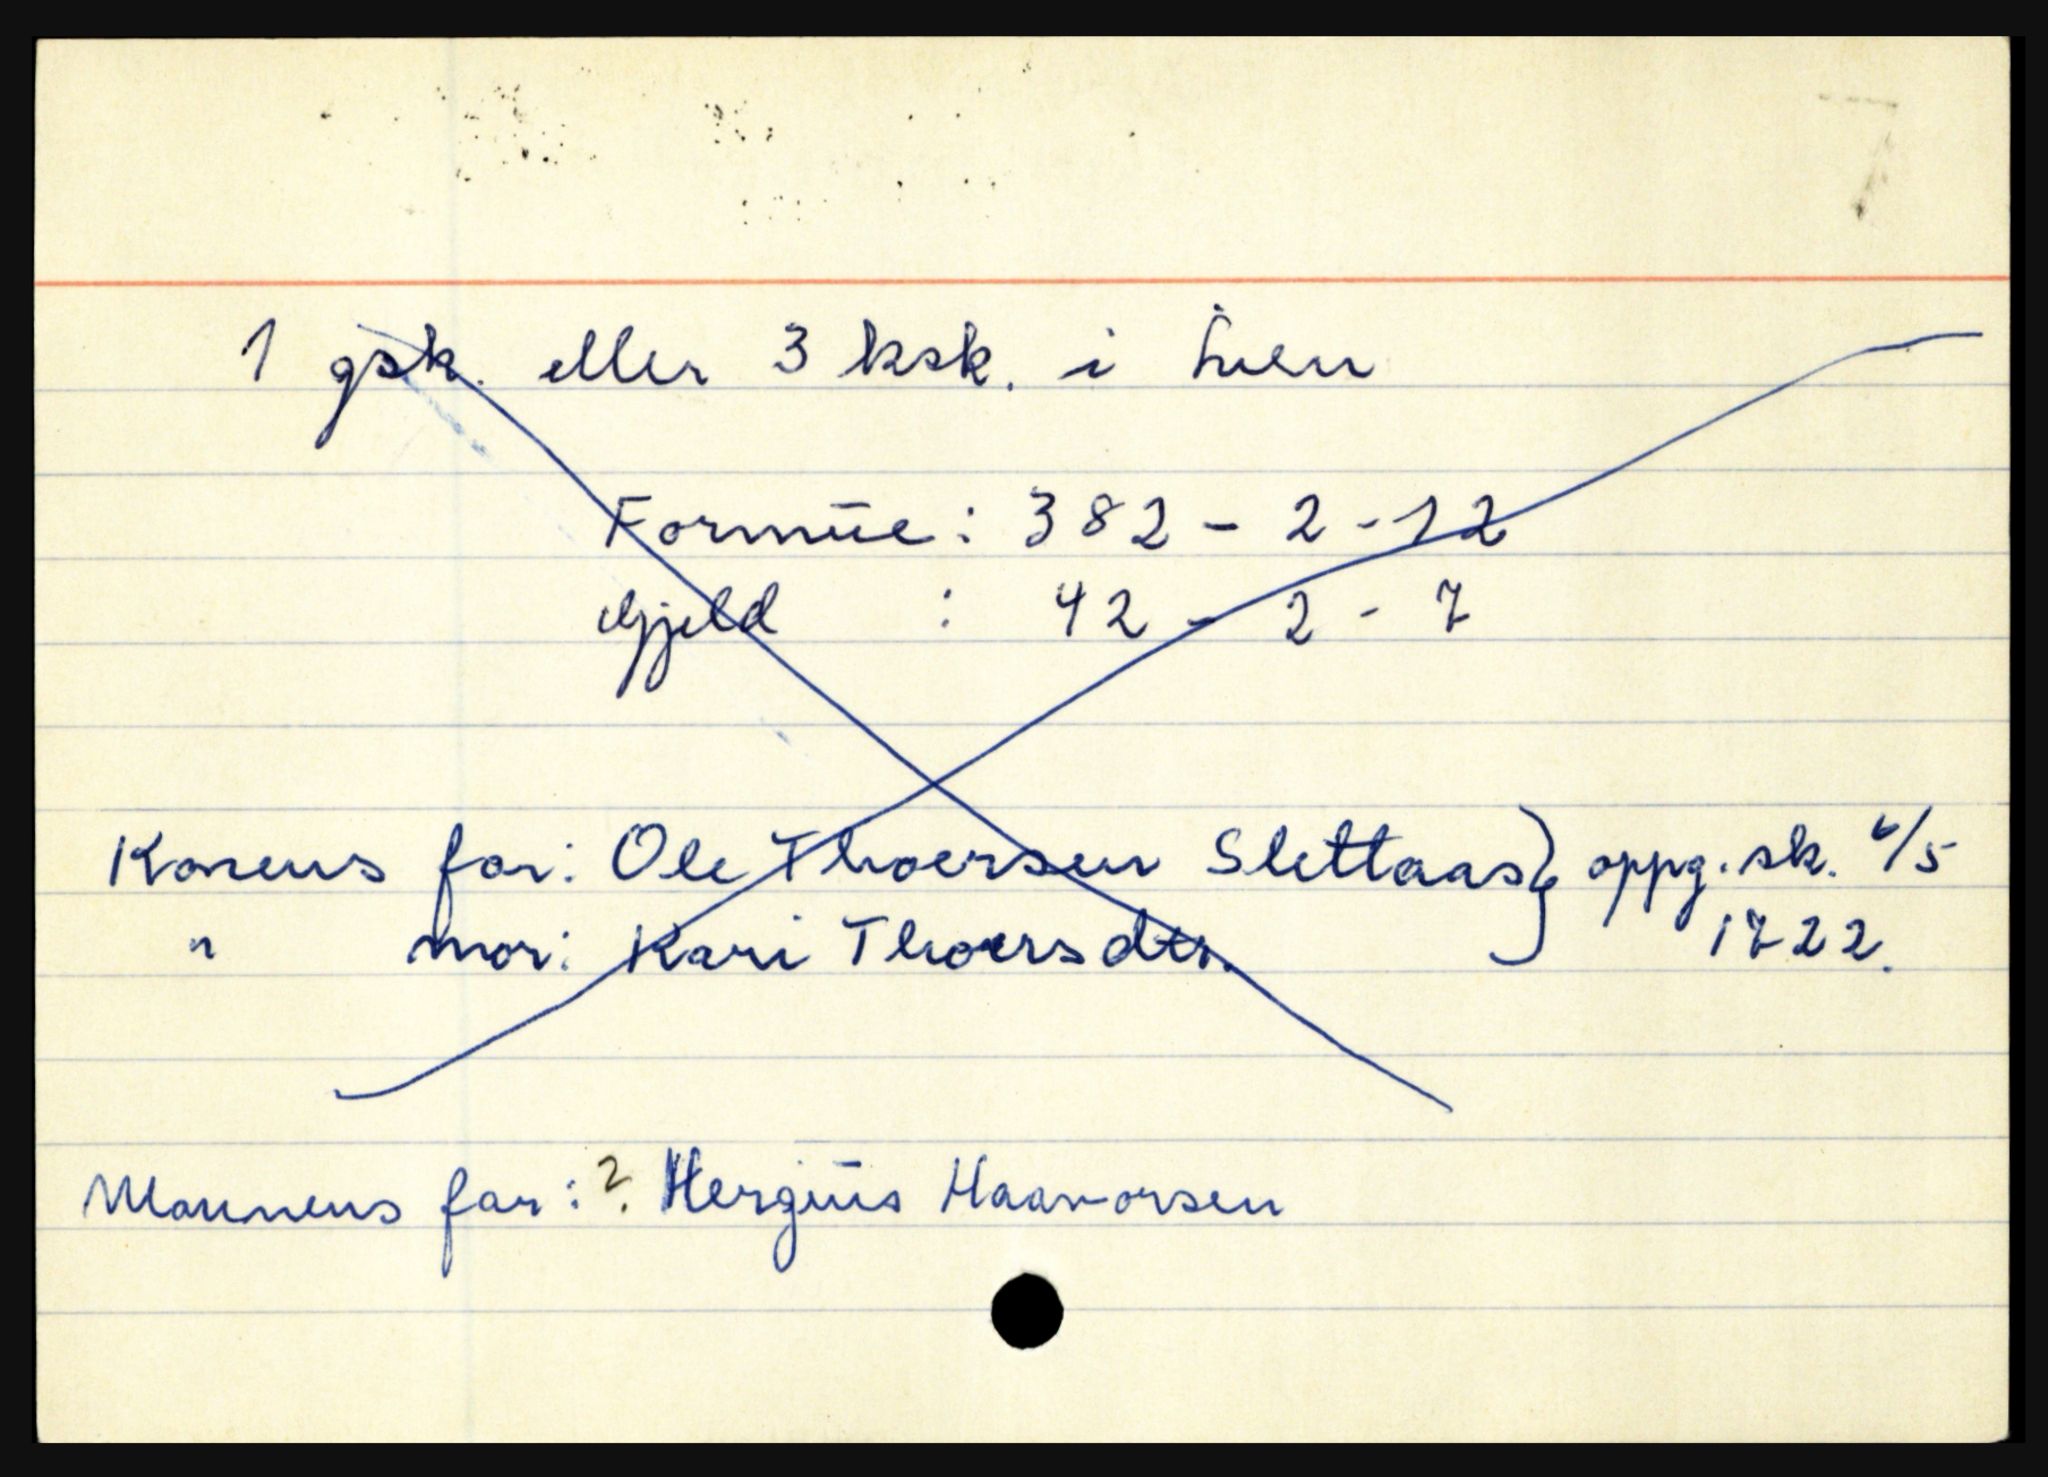 1 gsk. eller 3 ksk. i Lien
Formue: 382 - 2 - 12
Gjeld : 42 - 2 - 7
Konens far: Ole Thoersen Slettaas } oppg. sk. 6/5
" mor: Kari Thoersdtr. 1722.
Mannens far: ? Hergius Haavorsen